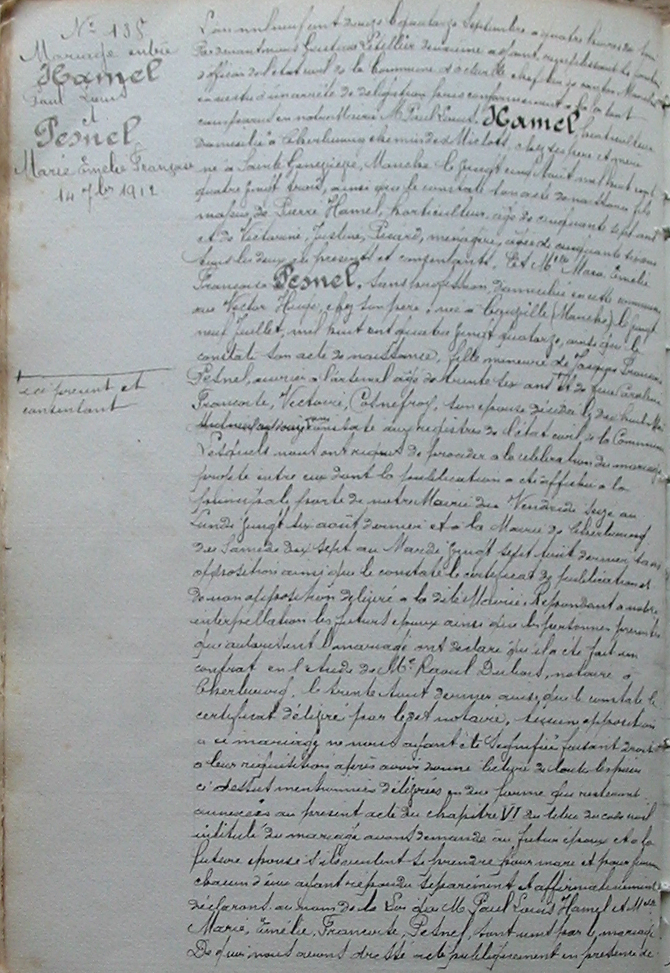 N° 138
Mariage entre
Hamel
Paul Louis
et
Pesnel
Marie Emélie Françoise
14 7bre 1912
L'an mil neuf cent douze le quatorze Septembre à quatre heures du soir
Pardevant nous Gustave Letellier deuxième adjoint remplissant les fonctions
d'officier de l'état civil de la Commune d'Octeville chef lieu de canton Manche
en vertu d'un arrêté de délégation pris conformément à la loi ont
comparu en notre Mairie M. Paul Louis Hamel, horticulteur
domicilié à Cherbourg chemin des chez ses père et mère
né à Sainte Geneviève, Manche le vingt cinq Août mil huit cent
quatre vingt trois, ainsi que le constate son acte de naissance fils
majeur de Pierre Hamel, horticulteur, âgé de cinquante sept ans
et de Victorine, Justine, Picard, ménagère, âgée de cinquante ans
tous les deux ici présents et consentants. Et Melle Marie Emélie
Françoise Pesnel, sans profession, domiciliée en cette commune
rue Victor Hugo, chez son père, née à (Manche) le vingt
neuf Juillet, mil huit cent quatre vingt quatorze, ainsi que le
constate son acte de naissance, fille mineure de Jacques François
Pesnel, ouvrier à l'arsenal âgé de trente six ans et de feue Caroline
ici présent et
consentant
Françoise, Victoire, Cosnefroy, son épouse décédée le dix huit Mai
constaté aux registres de l'état civil de la Commune
Lesquels nous ont requis de procéder à la célébration du mariage
projeté entre eux dont la publication a été affichée à la
principale porte de notre Mairie du Vendredi Seize au
Lundi Vingt six août dernier et à la Mairie de Cherbourg
du Samedi dix sept au Mardi vingt sept Août dernier sans
opposition ainsi que le constate le certificat de publication et
de non opposition délivré à la dite Mairie. Répondant à notre
interpellation les futurs époux ainsi que les personnes présentes
qui autorisent le mariage ont déclaré qu'il a été fait un
contrat en l'étude de Me Raoul Dubois, notaire à
Cherbourg, le trente Août dernier ainsi que le constate le
certificat délivré par ledit notaire. Aucune opposition
à ce mariage ne nous ayant été signifiée faisant droit
à leur réquisition après avoir donné lecture de toutes les pièces
ci dessus mentionnées délivrées en due forme qui resteront
annexées au présent acte du chapitre VI du titre du code civil
intitulé du mariage avons demandé au futur époux et à la
future épouse s'ils veulent se prendre pour mari et pour femme
chacun d'eux ayant répondu séparément et affirmativement
déclarons au nom de la Loi que M. Paul Louis Hamel et Melle
Marie, Emélie, Françoise, Pesnel, sont unis par le mariage
De quoi nous avons dressé acte publiquement en présence de